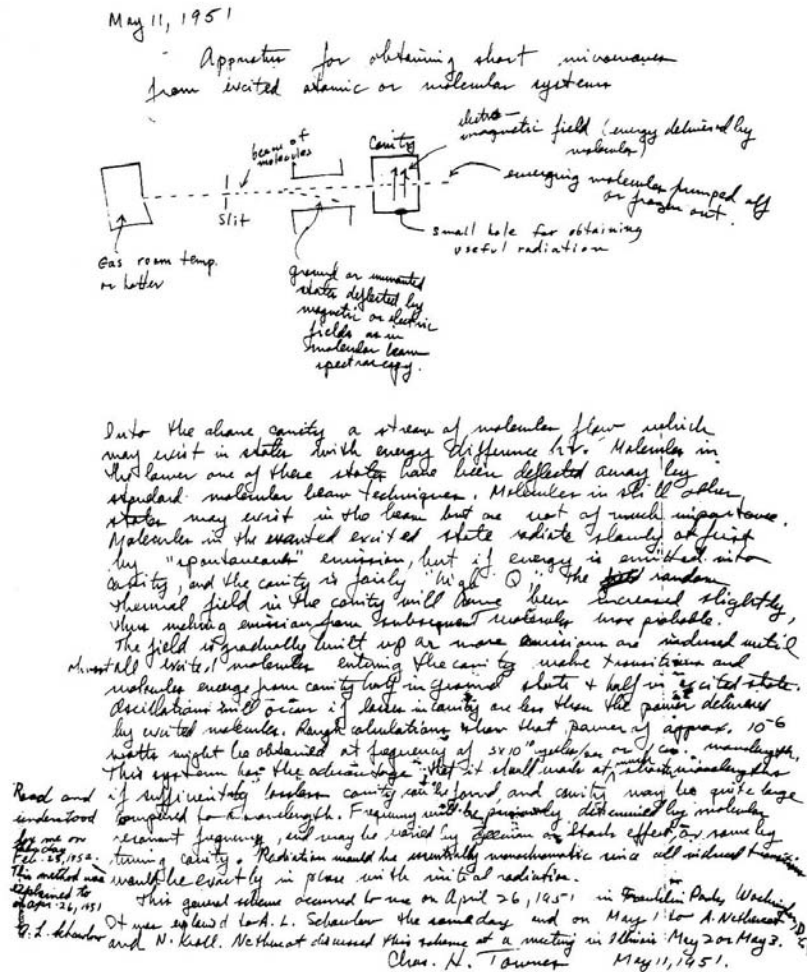 May 11, 1951
Apparatus for obtaining short microwaves
from excited atomic or molecular systems
beam of
molecules
Slit
Gas room temp.
or hotter
ground or unwanted
states deflected by
magnetic or electric
fields as in
molecular beam
spectroscopy.
Cavity
electro-
magnetic field (energy delivered by
molecules)
emerging molecules pumped off
or frozen out.
small hole for obtaining
useful radiation
Into the above cavity a stream of molecules flow which
may exist in states with energy difference hν. Molecules in
the lower one of these states have been deflected away by
standard molecular beam techniques. Molecules in still other
states may exist in the beam but are not of much importance.
Molecules in the wanted excited state radiate slowly at first
by "spontaneous" emission, but if energy is emitted into
cavity, and the cavity is fairly "high Q", the random
thermal field in the cavity will have been increased slightly,
thus making emission from subsequent molecules more probable.
The field is gradually built up as more emissions are induced until
almost all excited molecules entering the cavity make transitions and
molecules emerge from cavity half in ground state + half in excited state.
Oscillations will occur if losses in cavity are less than the power delivered
by excited molecules. Rough calculations show that power of approx. 10⁻⁶
watts might be obtained at frequency of or wavelength.
This system has the advantage that it shall made at much wavelengths
if sufficiently lossless cavity can be found and cavity may be quite large
compared to a wavelength. Frequency will be determined by molecular
resonant frequency, and may be varied by Zeeman or Stark effect, or some by
tuning cavity. Radiation would be essentially monochromatic since all induced transitions
would be exactly in phase with initial radiation.
This general scheme occurred to me on April 26, 1951 in Franklin Park, Washington, D.C.
It was explained to A. L. Schawlow the same day and on May 1 to A. Nethercot
and N. Kroll. Nethercot discussed this scheme at a meeting in Illinois May 2 or May 3.
Chas. H. Townes May 11, 1951.
Read and
understood
by me on
Feb. 25, 1952.
This method was
explained to
me on Apr. 26, 1951
A. L. Schawlow